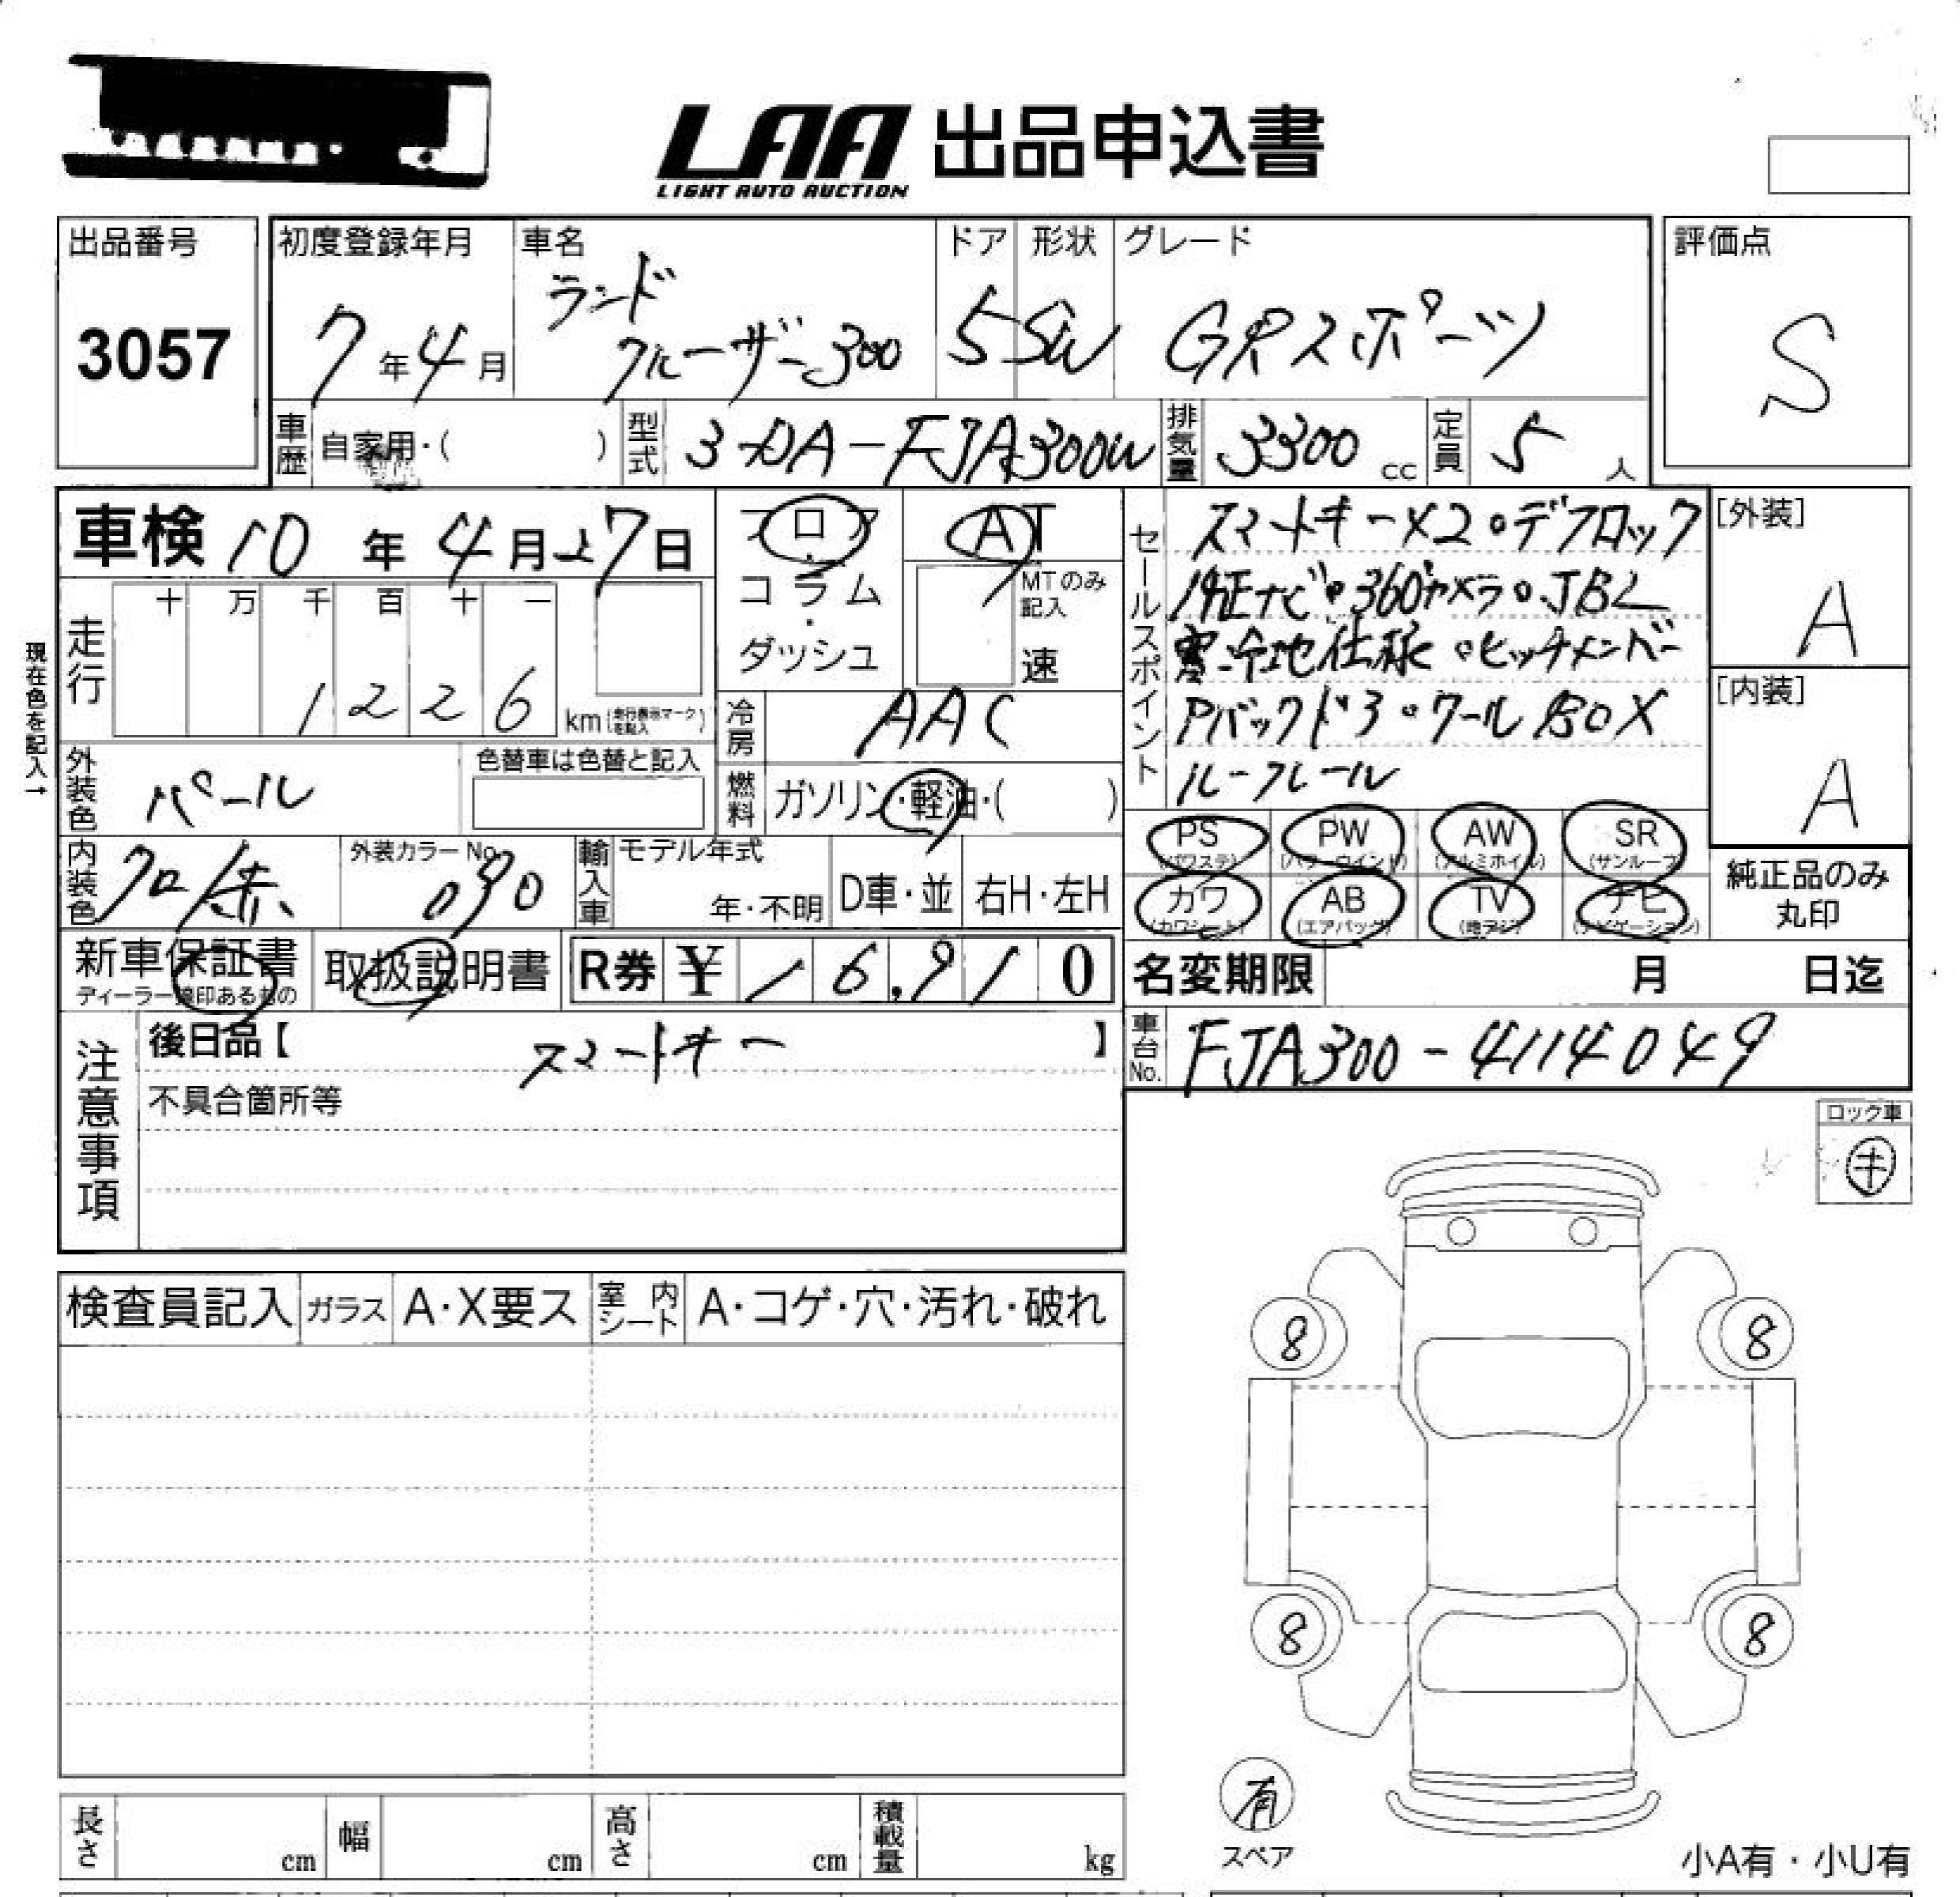 LAA 出品申込書
LIGHT AUTO AUCTION
出品番号
3057
初度登録年月
7年4月
車名
ランド
クルーザー300
ドア
5
形状
SW
グレード
GRスポーツ
評価点
S
車歴
自家用・( )
型式
3DA-FJA300W
排気量
3300 cc
定員
5人
車検 10年4月27日
フロア
・
コラム
・
ダッシュ
AT
MTのみ
記入
速
セールスポイント
スマートキー×2。デフロック
純正ナビ。360°カメラ。JBL
寒冷地仕様。ヒッチメンバー
Pバックドア。クールBOX
ルーフレール
[外装]
A
[内装]
A
現在色を記入→
走行
十 万 千 百 十 一
1 2 2 6
km (走行表示マークを記入)
冷房
AAC
外装色
パール
色替車は色替と記入
燃料
ガソリン・軽油・( )
PS
(パワステ)
PW
(パワーウインド)
AW
(アルミホイル)
SR
(サンルーフ)
カワ
(カワシート)
AB
(エアバッグ)
TV
(地デジ)
ナビ
(ナビゲーション)
純正品のみ
丸印
内装色
クロ/赤
外装カラーNo.
090
輸入車
モデル年式
年・不明
D車・並
右H・左H
新車保証書
ディーラー捺印あるもの
取扱説明書
R券 ¥ 16,910
名変期限 月 日迄
車台No.
FJA300-4114049
注意事項
後日品【 スマートキー 】
不具合箇所等
ロック車
キ
検査員記入
ガラス
A・X要ス
室内シート
A・コゲ・穴・汚れ・破れ
8
8
8
8
有
スペア
長さ cm
幅 cm
高さ cm
積載量 kg
小A有・小U有